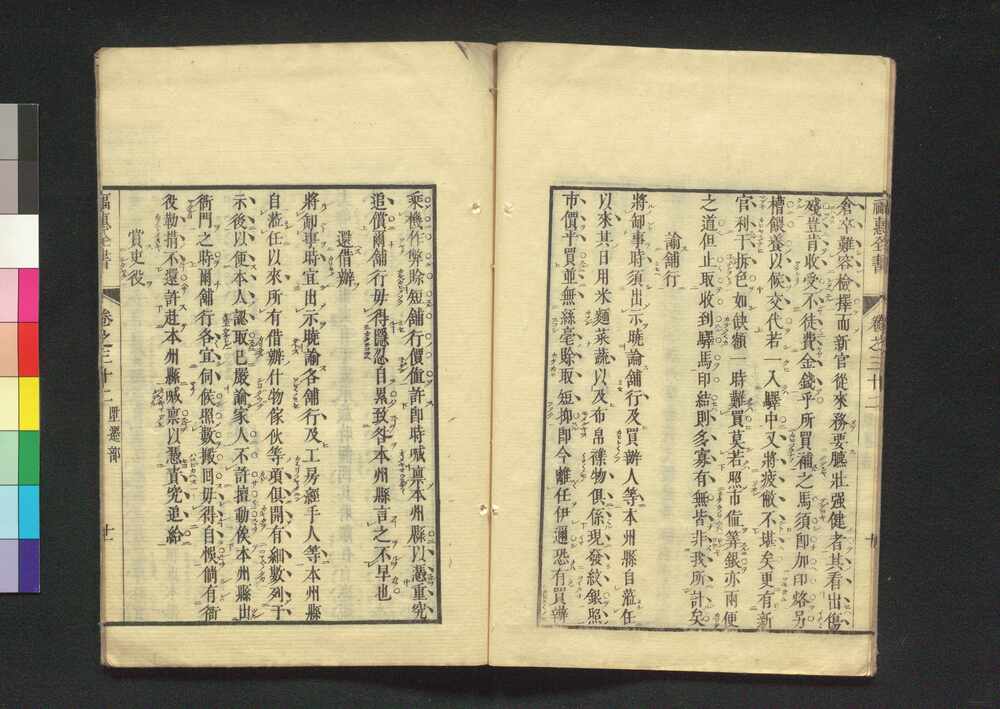 倉卒難容檢擇而新官從來務要臕壯强健者其看出傷
殘豈肯收受不徒費金錢乎所買補之馬須即加印烙另
槽餵養以候交代若一入驛中又將疲敝不堪矣更有新
官利于拆色如缺額一時難買莫若照市値筭銀亦兩便
之道但止取收到驛馬印結則多寡有無皆非我所計矣
諭舖行
將卸事時須出示曉諭舖行及買辦人等本州縣自蒞任
以來其日用米麵菜蔬以及布帛襍物俱係現發紋銀照
市價平買並無絲毫賒取短抑即今離任伊邇恐有買辦
福惠全書
卷之三十二
十
乘機作弊賒短舖行價値許即時喊禀本州縣以憑重究
追償爾舖行毋得隱忍自累致咎本州縣言之不早也
還借辦
將卸事時宜出示曉諭各舖行及工房經手人等本州縣
自蒞任以來所有借辦什物傢伙等項俱開有細數列于
示後以便本人認取已嚴諭家人不許擅動俟本州縣出
衙門之時爾舖行各宜伺候照數搬回毋得自悞倘有衙
役勒掯不還許赴本州縣喊禀以憑責究追給
賞吏役
福惠全書
卷之三十二
陞遷部
十一